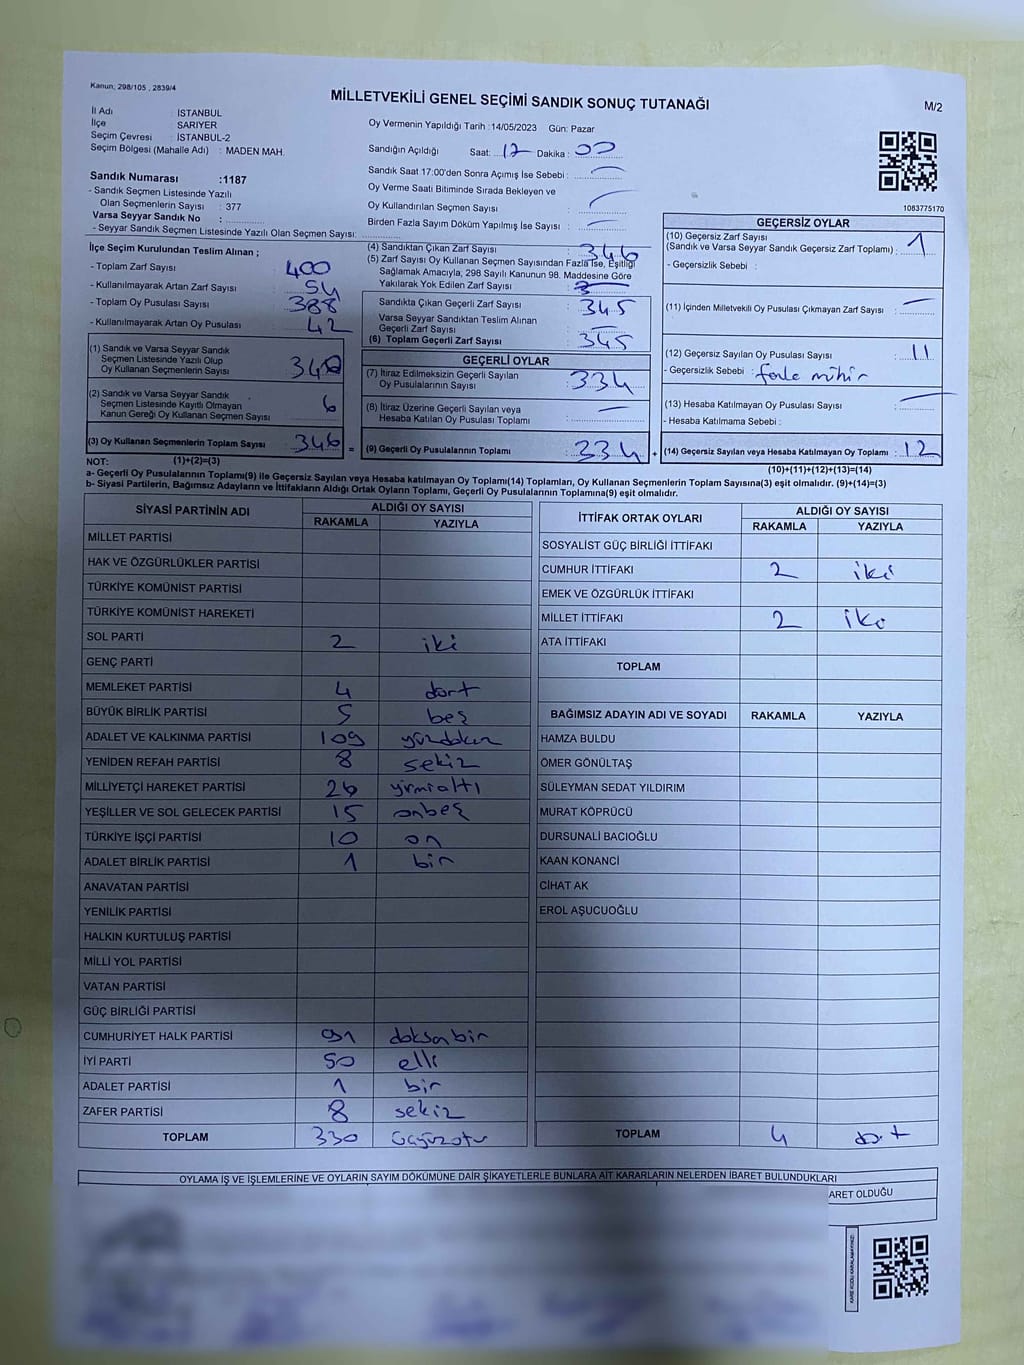 Kanun; 298/105 , 2839/4
MİLLETVEKİLİ GENEL SEÇİMİ SANDIK SONUÇ TUTANAĞI
M/2
İl Adı : İSTANBUL
İlçe SARIYER
Seçim Çevresi : İSTANBUL-2
Seçim Bölgesi (Mahalle Adı) : MADEN MAH.
Oy Vermenin Yapıldığı Tarih :14/05/2023 Gün: Pazar
Sandığın Açıldığı Saat: 17 Dakika : 00
Sandık Saat 17:00'den Sonra Açımış İse Sebebi :
Oy Verme Saati Bitiminde Sırada Bekleyen ve
Oy Kullandırılan Seçmen Sayısı :
Birden Fazla Sayım Döküm Yapılmış İse Sayısı :
1083775170
Sandık Numarası :1187
- Sandık Seçmen Listesinde Yazılı
Olan Seçmenlerin Sayısı : 377
Varsa Seyyar Sandık No :
- Seyyar Sandık Seçmen Listesinde Yazılı Olan Seçmen Sayısı:
İlçe Seçim Kurulundan Teslim Alınan ;
- Toplam Zarf Sayısı : 400
- Kullanılmayarak Artan Zarf Sayısı : 54
- Toplam Oy Pusulası Sayısı : 388
- Kullanılmayarak Artan Oy Pusulası : 42
(1) Sandık ve Varsa Seyyar Sandık
Seçmen Listesinde Yazılı Olup
Oy Kullanan Seçmenlerin Sayısı : 340
(2) Sandık ve Varsa Seyyar Sandık
Seçmen Listesinde Kayıtlı Olmayan
Kanun Gereği Oy Kullanan Seçmen Sayısı : 6
(3) Oy Kullanan Seçmenlerin Toplam Sayısı : 346 =
(4) Sandıktan Çıkan Zarf Sayısı : 346
(5) Zarf Sayısı Oy Kullanan Seçmen Sayısından Fazla İse, Eşitliği
Sağlamak Amacıyla, 298 Sayılı Kanunun 98. Maddesine Göre
Yakılarak Yok Edilen Zarf Sayısı :
Sandıkta Çıkan Geçerli Zarf Sayısı : 345
Varsa Seyyar Sandıktan Teslim Alınan
Geçerli Zarf Sayısı :
(6) Toplam Geçerli Zarf Sayısı : 345
GEÇERLİ OYLAR
(7) İtiraz Edilmeksizin Geçerli Sayılan
Oy Pusulalarının Sayısı : 334
(8) İtiraz Üzerine Geçerli Sayılan veya
Hesaba Katılan Oy Pusulası Toplamı :
(9) Geçerli Oy Pusulalarının Toplamı : 334 +
GEÇERSİZ OYLAR
(10) Geçersiz Zarf Sayısı
(Sandık ve Varsa Seyyar Sandık Geçersiz Zarf Toplamı) : 1
- Geçersizlik Sebebi :
(11) İçinden Milletvekili Oy Pusulası Çıkmayan Zarf Sayısı :
(12) Geçersiz Sayılan Oy Pusulası Sayısı : 11
- Geçersizlik Sebebi : fazla mühür
(13) Hesaba Katılmayan Oy Pusulası Sayısı :
- Hesaba Katılmama Sebebi :
(14) Geçersiz Sayılan veya Hesaba Katılmayan Oy Toplamı : 12
NOT: (1)+(2)=(3)
(10)+(11)+(12)+(13)=(14)
a- Geçerli Oy Pusulalarının Toplamı(9) ile Geçersiz Sayılan veya Hesaba katılmayan Oy Toplamı(14) Toplamları, Oy Kullanan Seçmenlerin Toplam Sayısına(3) eşit olmalıdır. (9)+(14)=(3)
b- Siyasi Partilerin, Bağımsız Adayların ve İttifakların Aldığı Ortak Oyların Toplamı, Geçerli Oy Pusulalarının Toplamına(9) eşit olmalıdır.
SİYASİ PARTİNİN ADI ALDIĞI OY SAYISI
RAKAMLA YAZIYLA
MİLLET PARTİSİ
HAK VE ÖZGÜRLÜKLER PARTİSİ
TÜRKİYE KOMÜNİST PARTİSİ
TÜRKİYE KOMÜNİST HAREKETİ
SOL PARTİ 2 iki
GENÇ PARTİ
MEMLEKET PARTİSİ 4 dört
BÜYÜK BİRLİK PARTİSİ 5 beş
ADALET VE KALKINMA PARTİSİ 109 yüzdokuz
YENİDEN REFAH PARTİSİ 8 sekiz
MİLLİYETÇİ HAREKET PARTİSİ 26 yirmialtı
YEŞİLLER VE SOL GELECEK PARTİSİ 15 onbeş
TÜRKİYE İŞÇİ PARTİSİ 10 on
ADALET BİRLİK PARTİSİ 1 bir
ANAVATAN PARTİSİ
YENİLİK PARTİSİ
HALKIN KURTULUŞ PARTİSİ
MİLLİ YOL PARTİSİ
VATAN PARTİSİ
GÜÇ BİRLİĞİ PARTİSİ
CUMHURİYET HALK PARTİSİ 91 doksanbir
İYİ PARTİ 50 elli
ADALET PARTİSİ 1 bir
ZAFER PARTİSİ 8 sekiz
TOPLAM 330 üçyüzotuz
İTTİFAK ORTAK OYLARI ALDIĞI OY SAYISI
RAKAMLA YAZIYLA
SOSYALİST GÜÇ BİRLİĞİ İTTİFAKI
CUMHUR İTTİFAKI 2 iki
EMEK VE ÖZGÜRLÜK İTTİFAKI
MİLLET İTTİFAKI 2 iki
ATA İTTİFAKI
TOPLAM
BAĞIMSIZ ADAYIN ADI VE SOYADI RAKAMLA YAZIYLA
HAMZA BULDU
ÖMER GÖNÜLTAŞ
SÜLEYMAN SEDAT YILDIRIM
MURAT KÖPRÜCÜ
DURSUNALİ BACIOĞLU
KAAN KONANCİ
CİHAT AK
EROL AŞUCUOĞLU
TOPLAM 4 dört
OYLAMA İŞ VE İŞLEMLERİNE VE OYLARIN SAYIM DÖKÜMÜNE DAİR ŞİKAYETLERLE BUNLARA AİT KARARLARIN NELERDEN İBARET BULUNDUKLARI
ARET OLDUĞU
KARE KODU KARALAMAYINIZ!